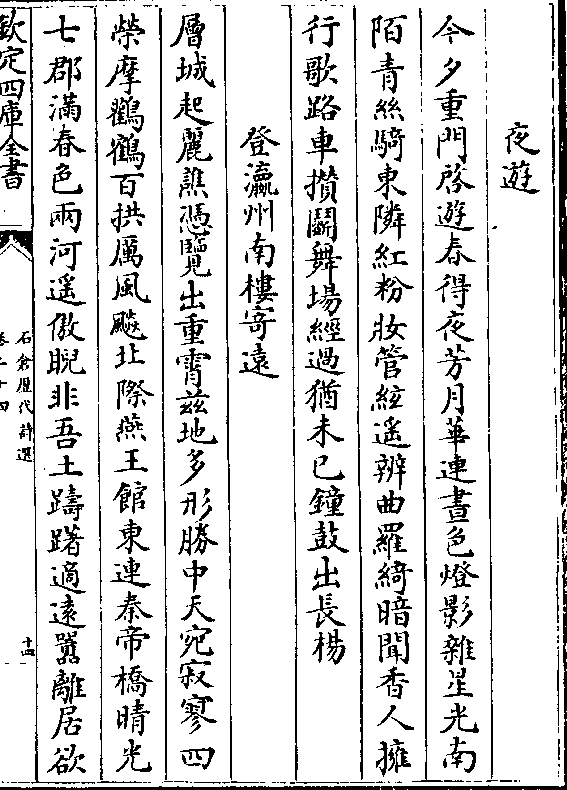 夜遊
今夕重門啓遊春得夜芳月華連晝色燈影雜星光南
陌青絲騎東隣紅粉妝管絃遥辨曲羅綺暗聞香人擁
行歌路車攢鬭舞場經過猶未已鐘鼓出長楊
登瀛州南樓寄遠
層城起麗譙憑覽出重霄兹地多形勝中天宛寂寥四
榮摩鸛鶴百拱厲風飇北際燕王館東連秦帝橋晴光
七郡滿春色兩河遥傲睨非吾土躊躇適遠囂離居欲
欽定四庫全書
石倉歷代詩選
卷二十四
十四